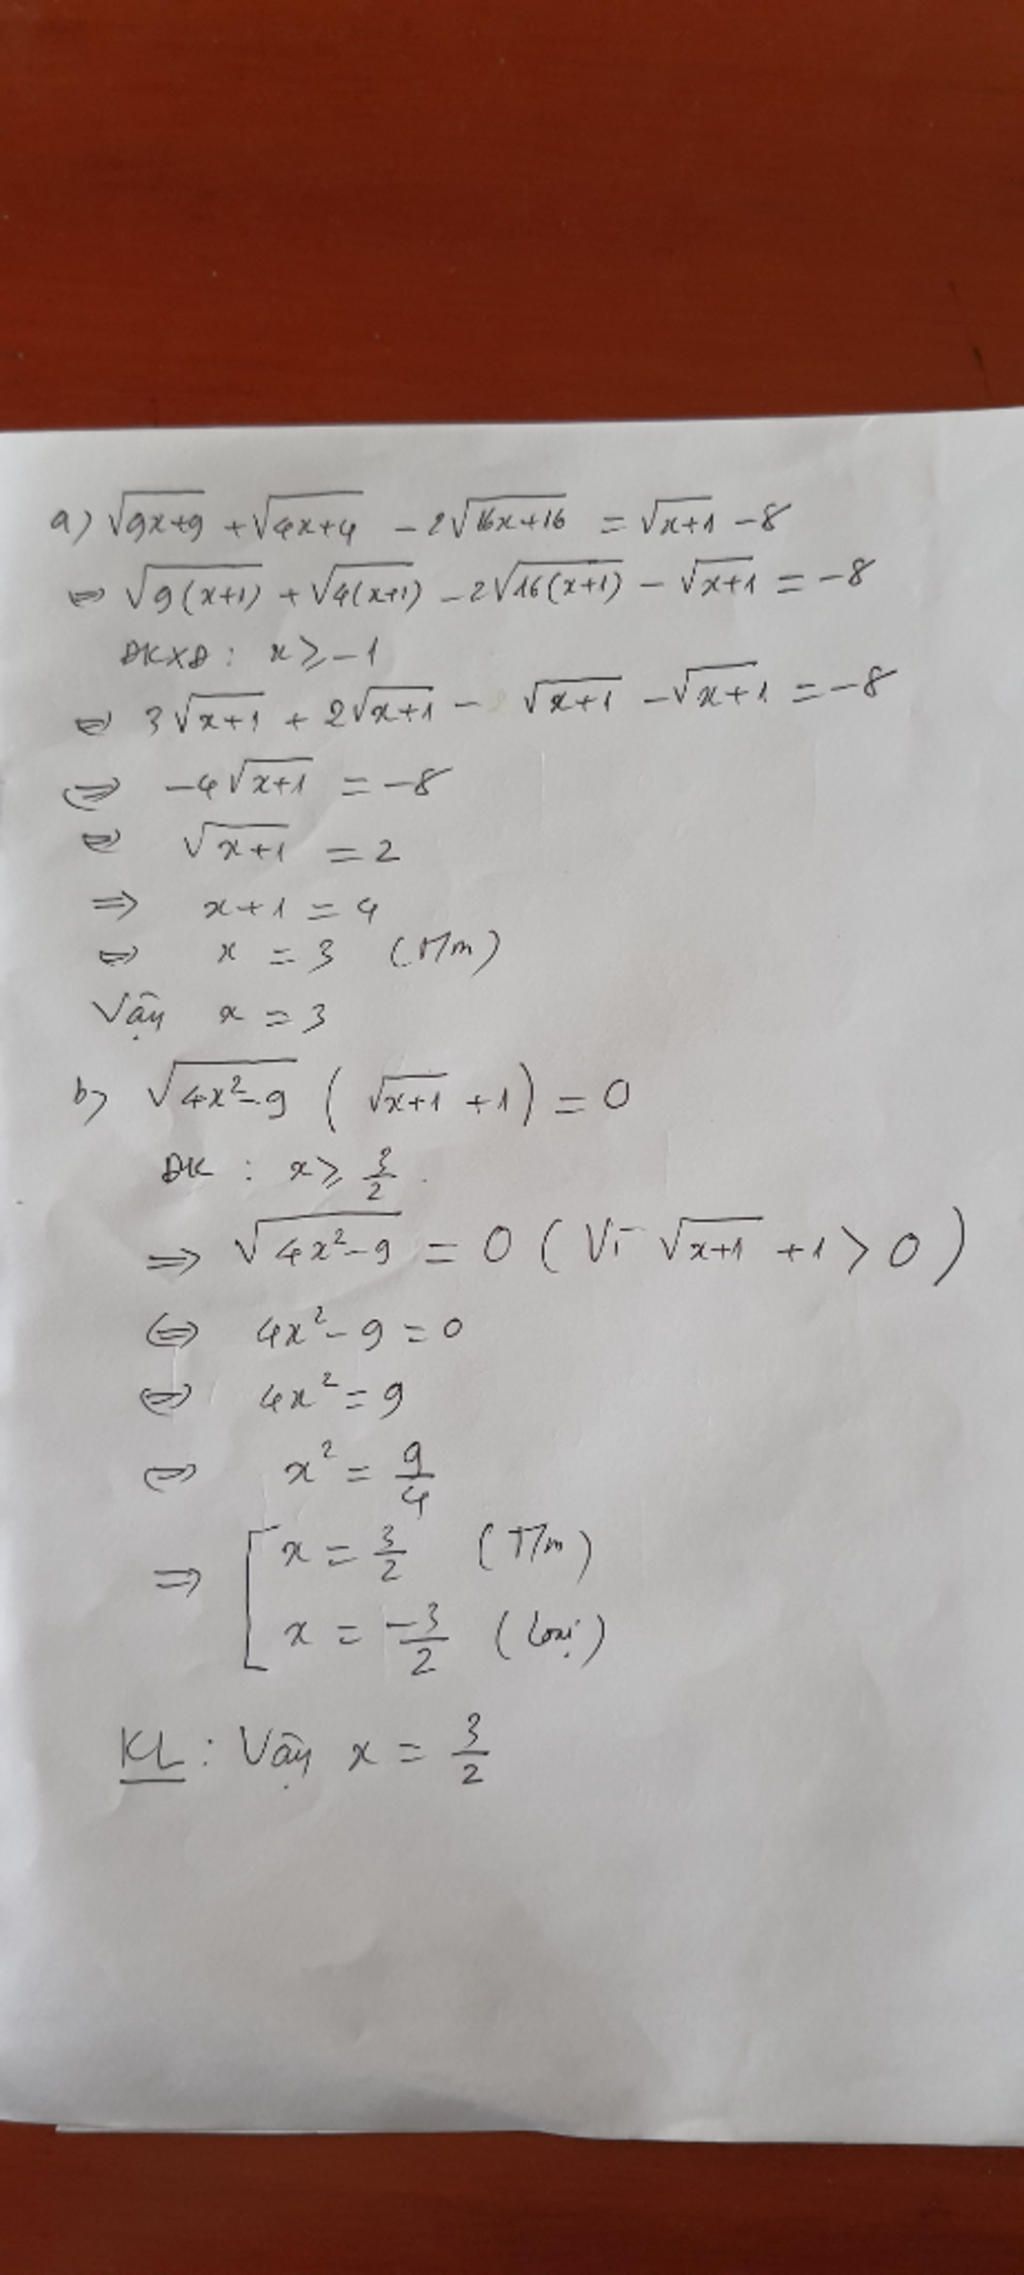 a) √(9x+9) + √(4x+4) - 2√(16x+16) = √(x+1) - 8
⇔ √(9(x+1)) + √(4(x+1)) - 2√(16(x+1)) - √(x+1) = -8
ĐKXĐ: x ≥ -1
⇔ 3√(x+1) + 2√(x+1) - √(x+1) - √(x+1) = -8
⇔ -4√(x+1) = -8
⇔ √(x+1) = 2
⇒ x+1 = 4
⇔ x = 3 (T/m)
Vậy x = 3
b) √(4x²-9) (√(x+1) + 1) = 0
ĐK : x ≥ 3/2.
⇒ √(4x²-9) = 0 (Vì √(x+1) + 1 > 0)
⇔ 4x² - 9 = 0
⇔ 4x² = 9
⇔ x² = 9/4
⇒ [ x = 3/2 (T/m)
x = -3/2 (Loại)
KL : Vậy x = 3/2